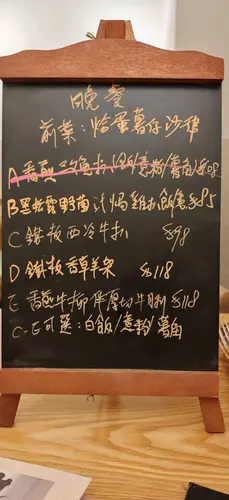 晚餐
前菜：烚蛋薯仔沙律
A 香煎
B 黑松露野菌汁焗雞扒飯/意 $85
C 鐵板西冷牛扒 $98
D 鐵板香草羊架 $118
E 香煎牛柳伴厚切牛脷 $118
C-E可選：白飯/意粉/薯角